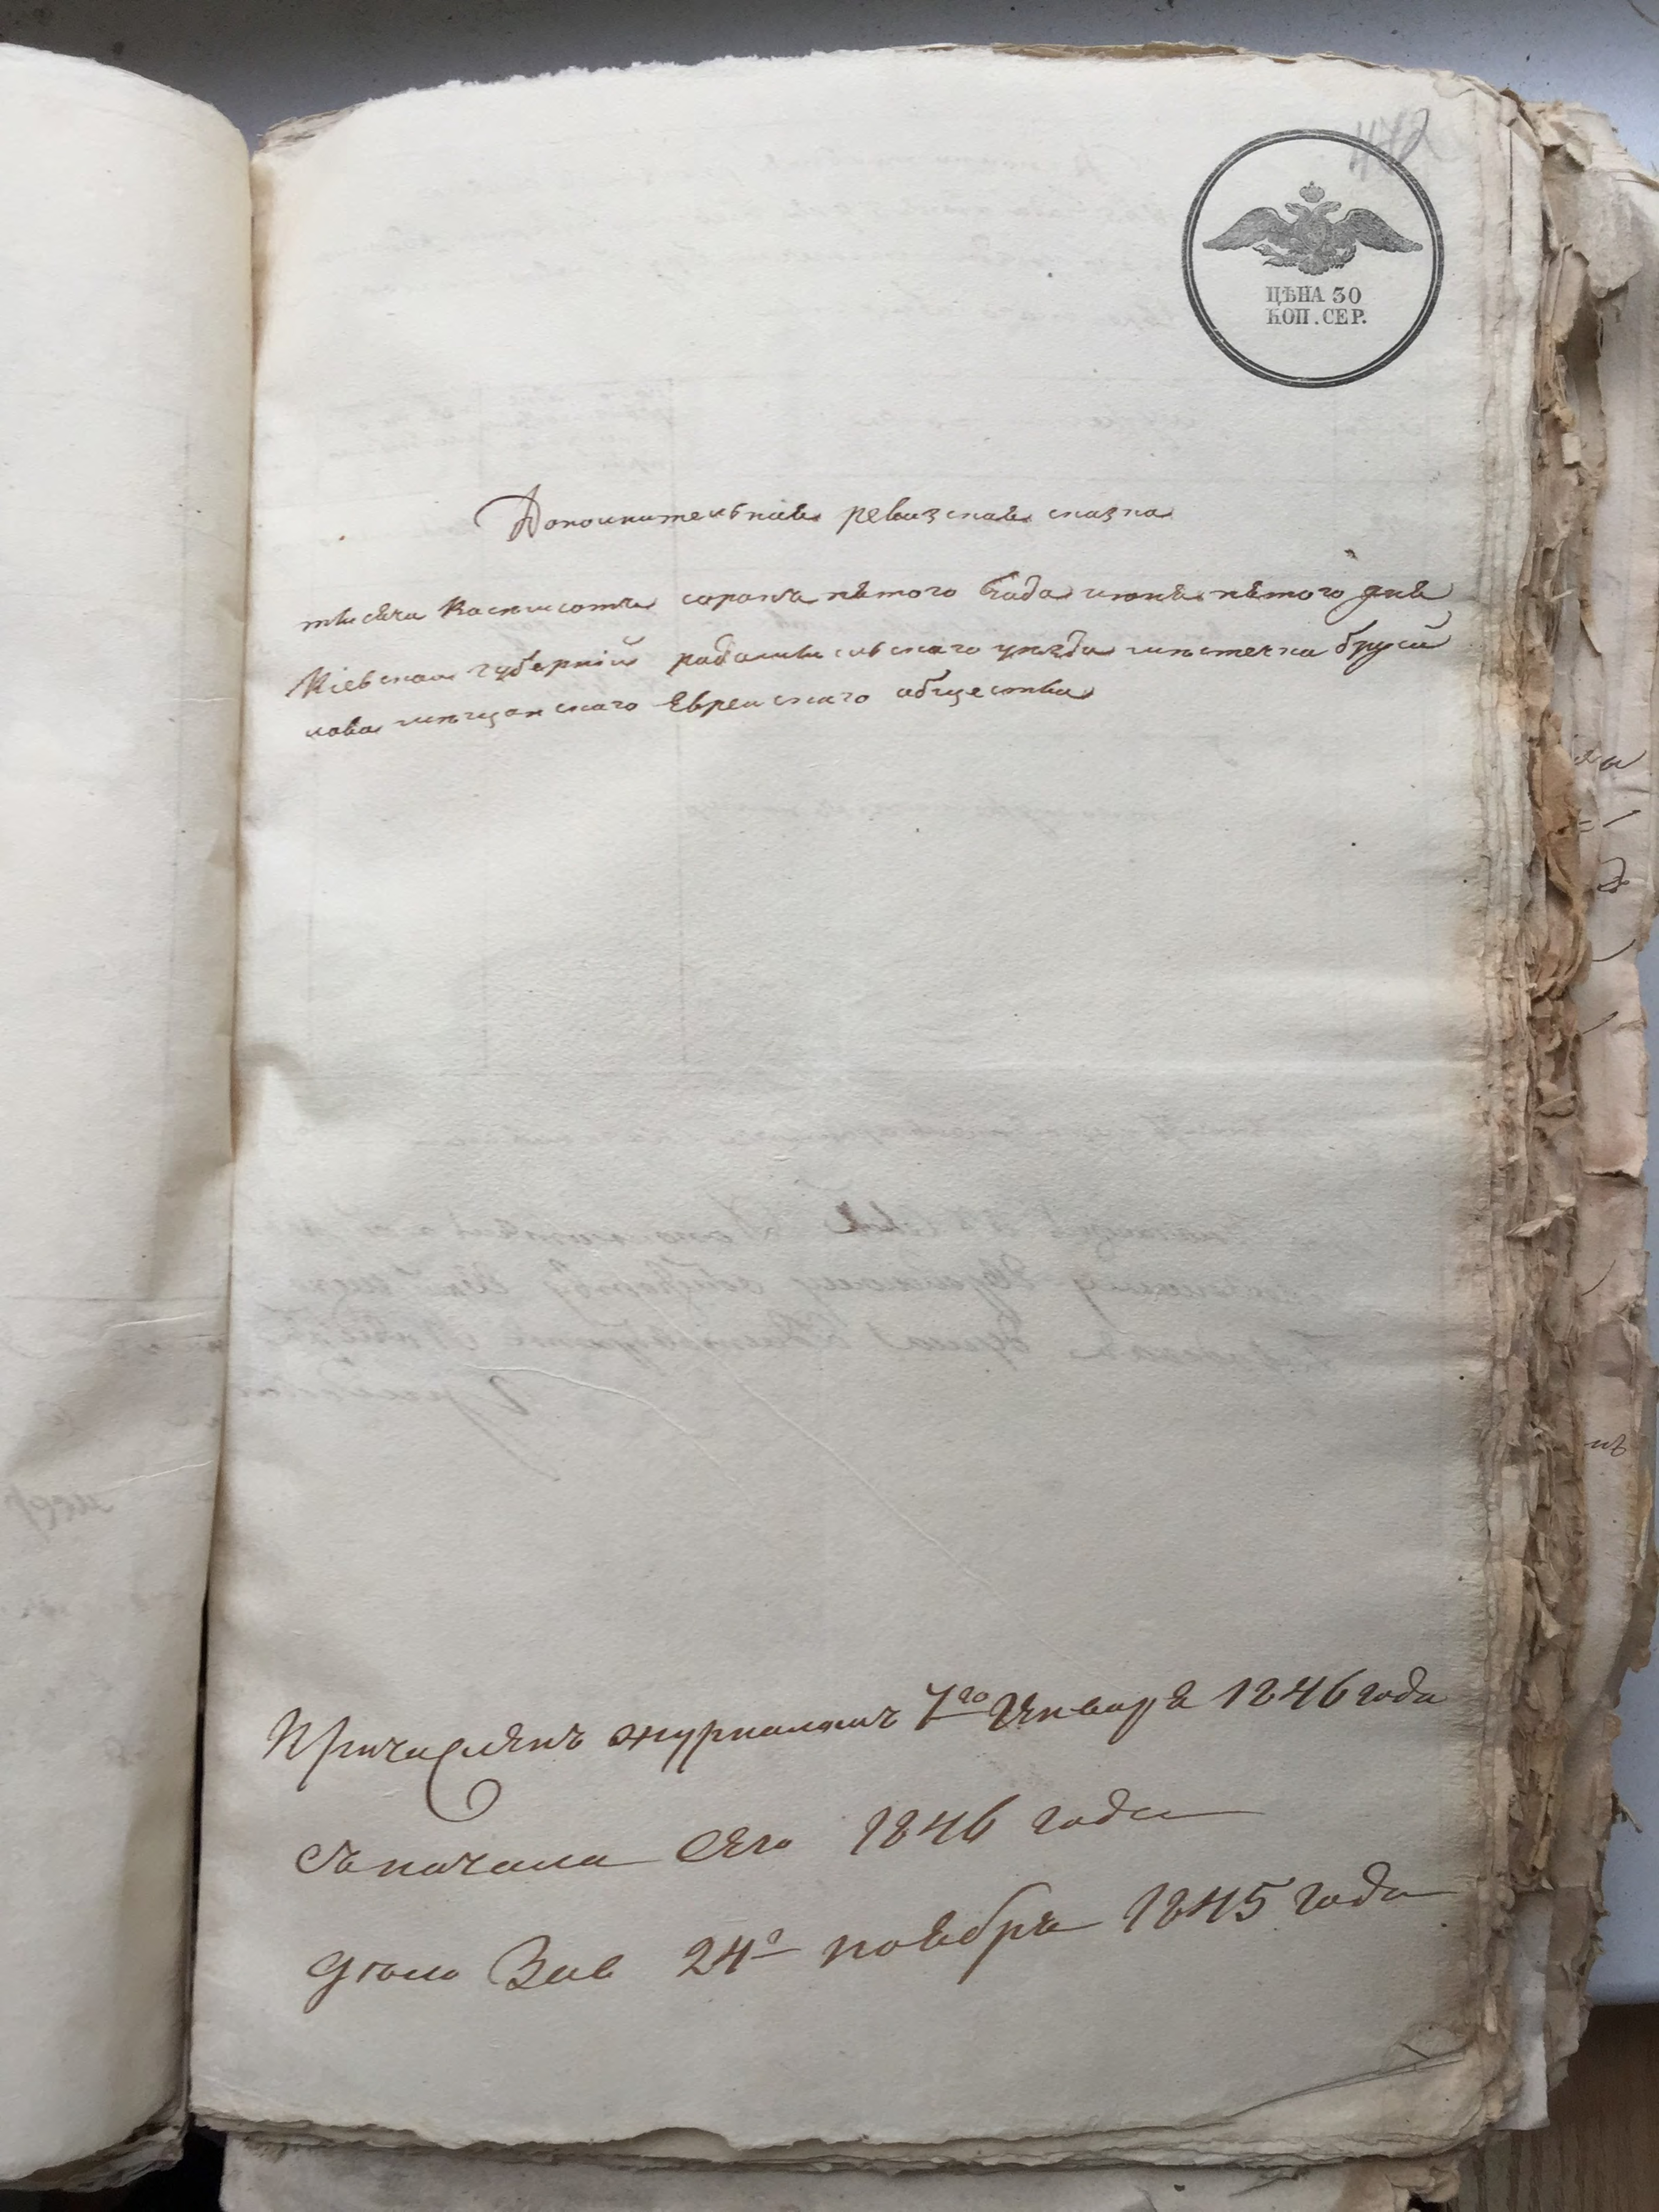 472
ЦѢНА 30
КОП. СЕР.
Дополнительная ревизская сказка
тысяча васмисотъ сорокъ пятого Года июня пятого дня
Кіевской губерніи радамысльского уѣзда мѣстечка бруси
лова мѣщанского Еврейского общества
Причисленъ журналомъ 7го Января 1846 года
съ начала сего 1846 года
дѣло 24 ноября 1845 года